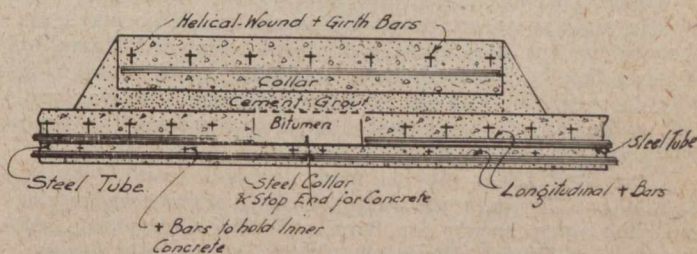 Helical-Wound + Girth Bars
Collar
Cement Grout
Bitumen
Steel Tube
Steel Tube
Steel Collar
& Stop End for Concrete
Longitudinal + Bars
+ Bars to hold Inner
Concrete